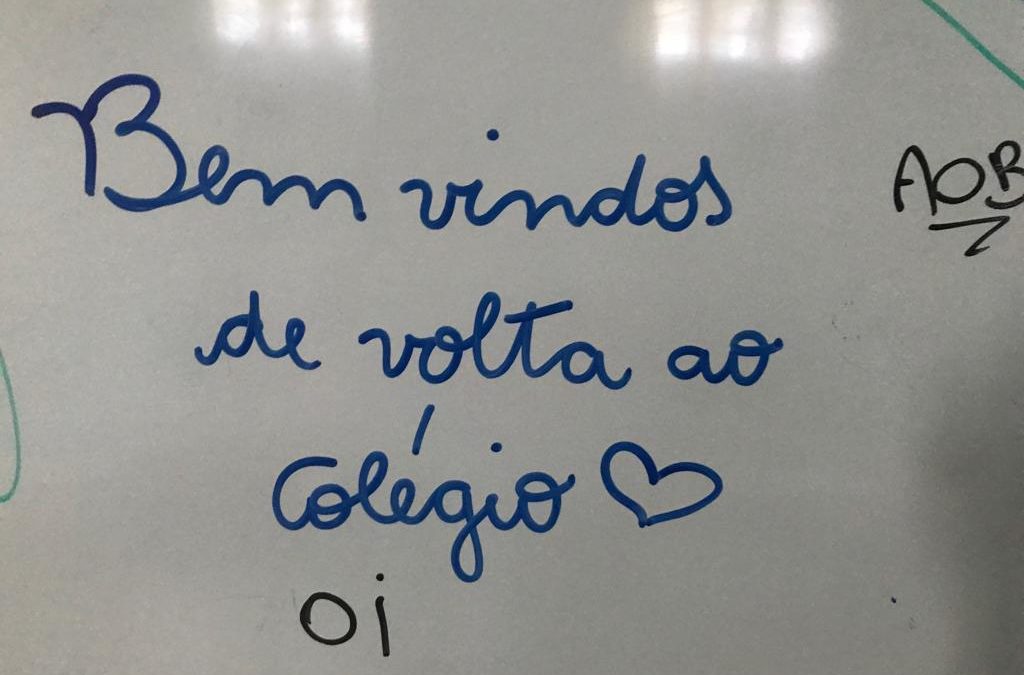 Bem vindos
AOB
de volta ao
Colégio ♡
oi